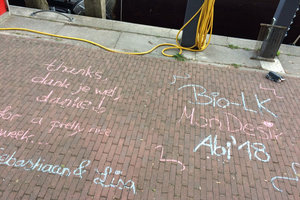 thanks,
dank je wel,
danke!
for a pretty nice
week...
Sebastiaan & Lisa
Bio-LK
MonDesk
Abi '18